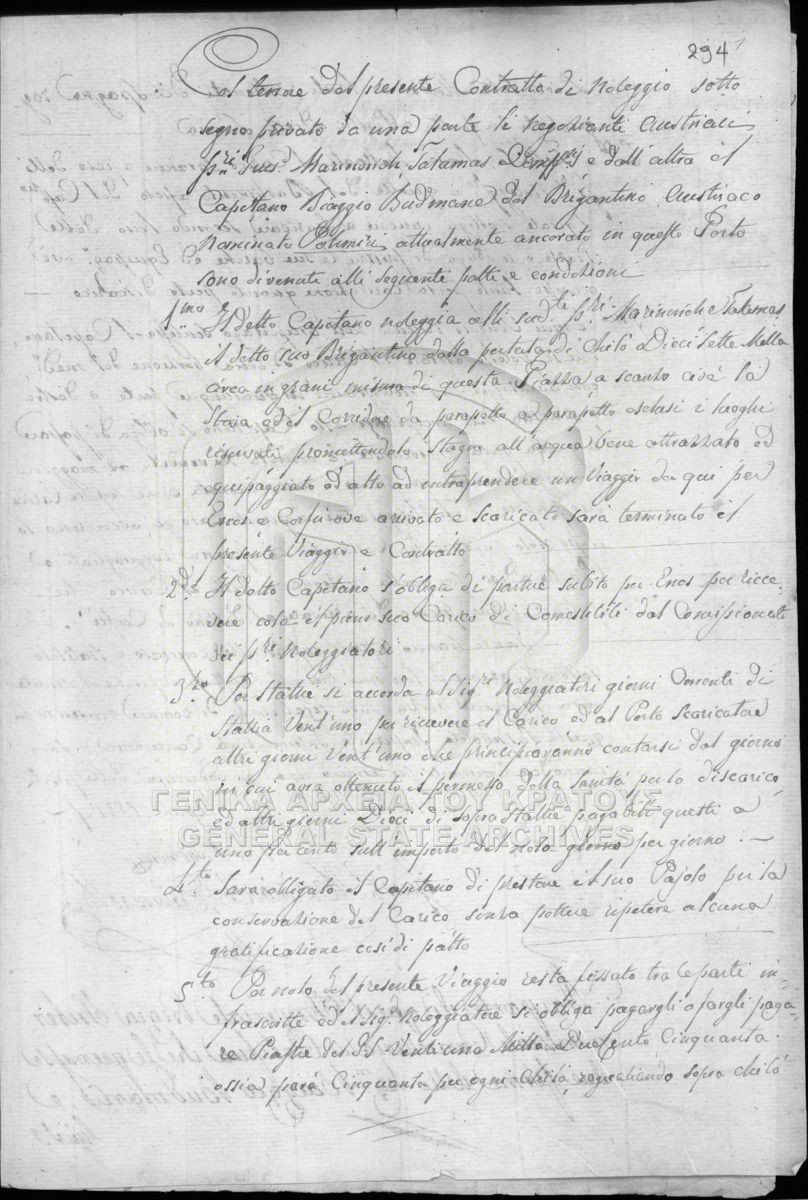 294
Col tenore del presente Contratto di Noleggio sotto
segno privato da una parte li Negozianti Austriaci
Marinovich Tatamas e dall'altra il
Capitano Biaggio Budmane del Brigantino Austriaco
Nominato attualmente ancorato in questo Porto
sono divenuti alli seguenti patti e condizioni
1.mo Il detto Capitano noleggia alli sud.ti Sri. Marinovich e Tatamas
il detto suo Brigantino dalla portata di Chilò Dieci Sette Milla
circa in grani misura di questa Piazza a scanzo cioè la
Staja ed il Corridore da parapetto a parapetto esclusi i luoghi
riservati promettendolo Stagno all'acqua bene attrazzato ed
equipaggiato ed atto ad intraprendere un Viaggio da qui per
Enos e Corfù ove arrivato e scaricato sarà terminato il
presente Viaggio e Contratto
2.do Il detto Capitano s'obliga di partire subito per Enos per rice-
vere colà il pieno suo Carico di Comestibili dal Comissionato
dei Sri. Noleggiatori
3.zo Per stallie si accorda al Sigri. Noleggiatori giorni Correnti di
Stallia Vent'uno per ricevere il Carico ed al Porto Scaricatore
altri giorni Vent'uno che principiaranno contarsi dal giorno
in cui avra ottenuto il permesso dalla Sanità per lo discarico
ed altri giorni Dieci di soprastallie pagabili questi a
uno per cento sull'importo del nolo giorno per giorno. —
ΓΕΝΙΚΑ ΑΡΧΕΙΑ ΤΟΥ ΚΡΑΤΟΥΣ
GENERAL STATE ARCHIVES
4.to Sarà obligato il Capitano di prestare il suo Pajolo per la
conservazione del Carico senza potere ripetere alcuna
gratificazione così di patto
5.to Per nolo del presente Viaggio resta fissato tra le parti in-
frascritte ed il Sig. Noleggiatore si obliga pagargli o fargli paga-
re Piastre Venti una Milla Due Cento Cinquanta
ossia parà Cinquanta per ogni Chilò ragualiando sopra chilò